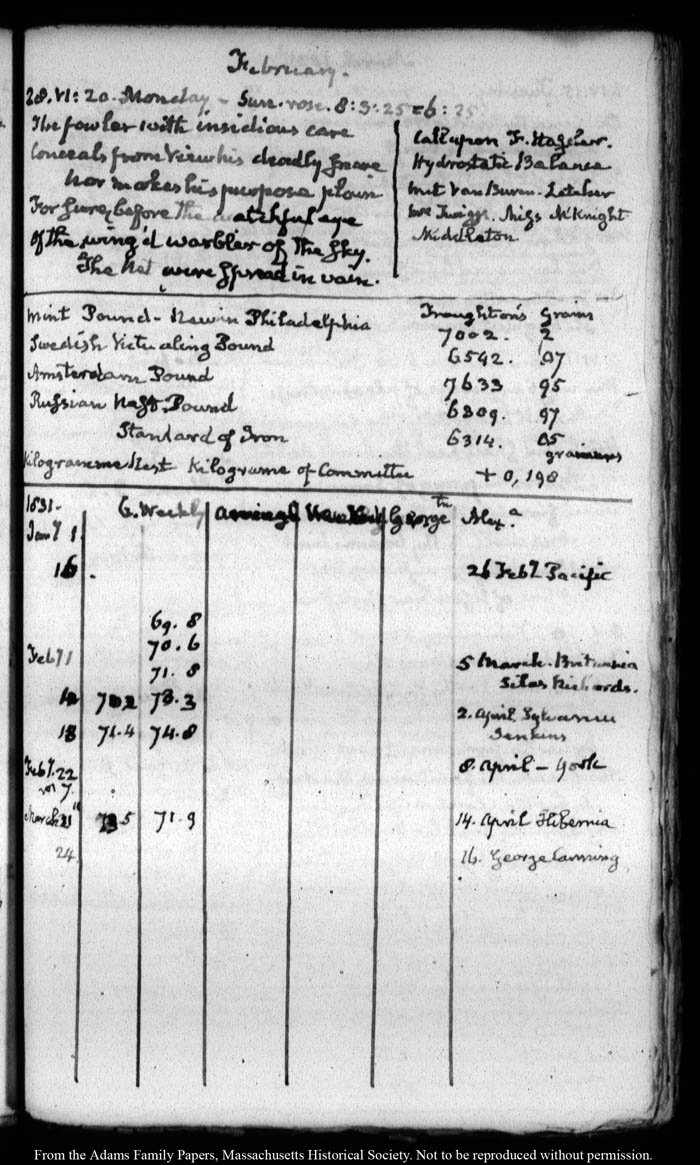 February.
28. VI: 20. Monday - Sun rose. 8:3:25=6:25
The fowler with insidious care
Conceals from view his deadly snare
Nor makes his purpose plain
For surely before the watchful eye
Of the wing'd warbler of the sky.
The Net were spread in vain.
Call upon F. Hassler.
Hydrostatic Balance
Mrt Van Buren. Letcher
Mc Knight
Middleton
Mint Pound - New in Philadelphia
Troughton's Grains
7002. 2
Swedish Victualing Pound
6542. 07
Amsterdam Pound
7633 95
Russian Pound
6309. 97
Standard of Iron
6314. 05
grammes
Kilogramme Kilogramme of Committee
+ 0,198
1831.
G. Weekly George tn Alex.a
Jany 1.
16.
26 Feby Pacific
69. 8
70. 6
Feby 1
71. 8
5 March. Britannia
Silas Richards.
73.3
2. April Sylvanus
Jenkins
18 71.4 74.8
Feby. 22
8. April - York
March 71.9
14. April Hibernia
24.
16. George Canning
From the Adams Family Papers, Massachusetts Historical Society. Not to be reproduced without permission.